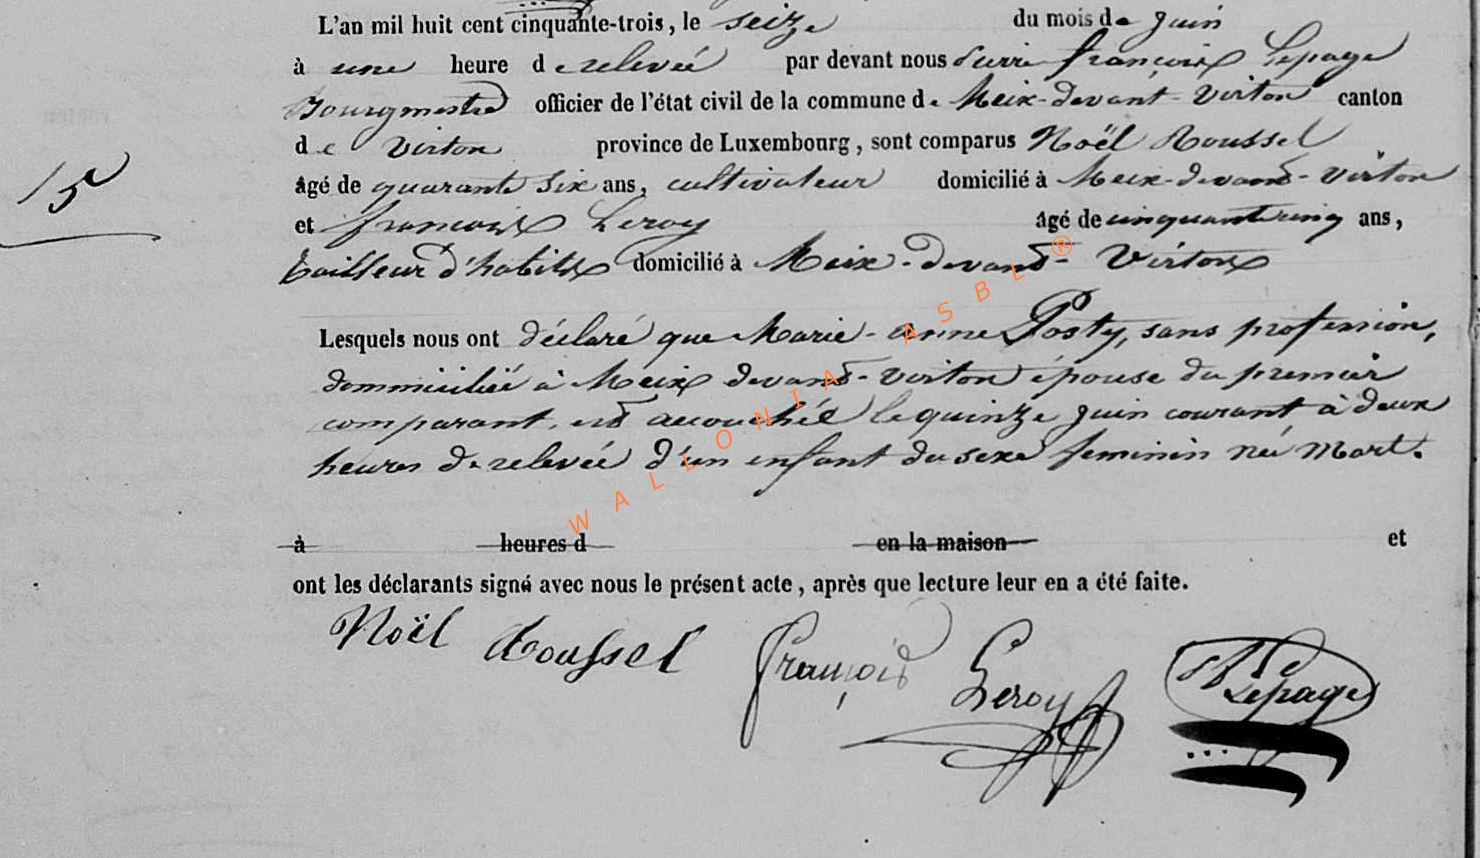 L'an mil huit cent cinquante-trois, le seize du mois de juin
à une heure de relevée par devant nous Pierre françois Lepage
Bourgmestre officier de l'état civil de la commune de Meix-devant-Virton canton
de Virton province de Luxembourg, sont comparus Noël Roussel
15
âgé de quarante six ans, cultivateur domicilié à Meix-devant-Virton
et françois Leroy âgé de cinquante cinq ans,
tailleur d'habits domicilié à Meix-devant-Virton
Lesquels nous ont déclaré que Marie-anne Posty, sans profession,
dommiciliée à Meix devant-Virton épouse du premier
comparant, est accouchée le quinze juin courant à deux
heures de relevée d'un enfant du sexe feminin né mort.
à heures d en la maison et
ont les déclarants signé avec nous le présent acte, après que lecture leur en a été faite.
Noël Roussel françois Leroy Lepage
WALLONIA ASBL ®